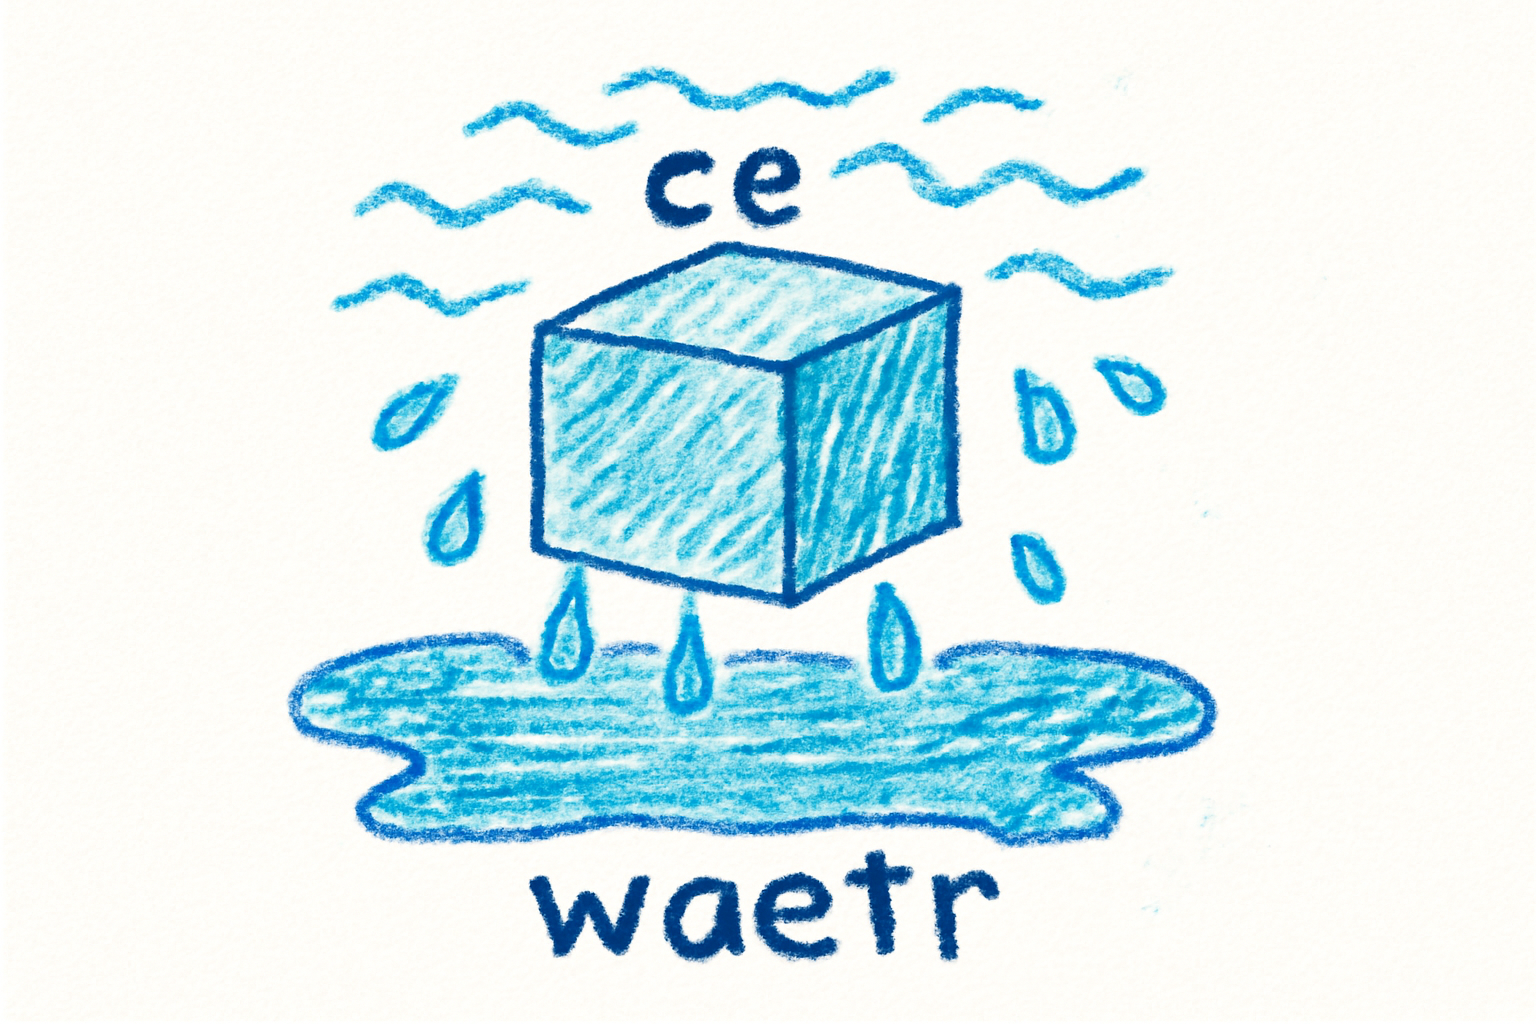 ce
waetr